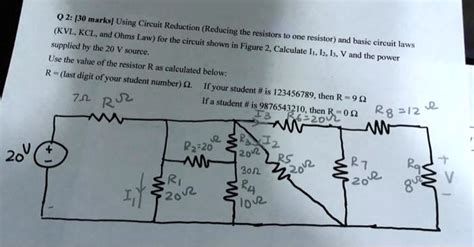 Q 2: [30 marks] Using Circuit Reduction (Reducing the resistors to one resistor) and basic circuit laws
(KVL, KCL, and Ohms Law) for the circuit shown in Figure 2, Calculate I₁, I₂, I₃, V and the power
supplied by the 20 V source.
Use the value of the resistor R as calculated below:
R = (last digit of your student number) Ω. If your student # is 123456789, then R = 9 Ω
If a student # is 9876543210, then R = 0 Ω
7Ω RΩ I3 R6=20Ω R8=12Ω
R2=20Ω R3 20Ω I2
20V + - 30Ω R5 20Ω R7 20Ω R9 8Ω + V -
I1 R1 20Ω R4 10Ω